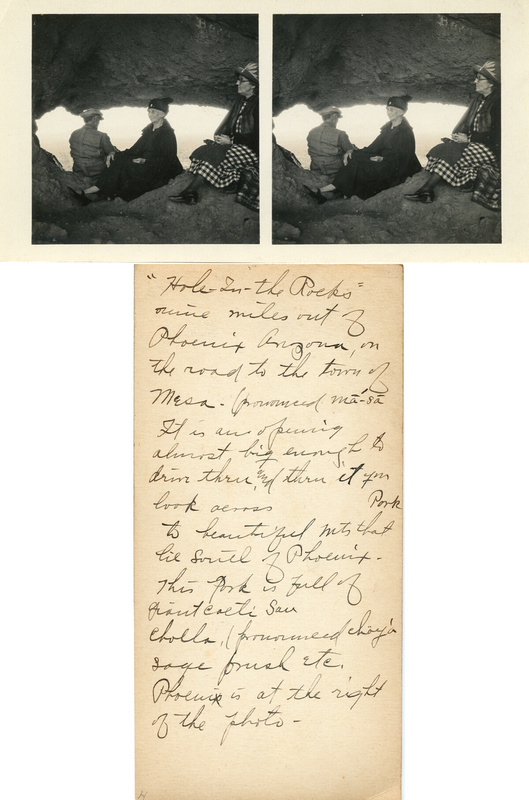 "Hole-In-the Rocks"
nine miles out of
Phoenix Arizona, on
the road to the town of
Mesa - (pronounced mā-sa
It is an opening
almost big enough to
drive thru, and thru it you
look across Park
to beautiful mts that
lie south of Phoenix -
This Park is full of
giant cacti Sau
cholla, (pronounced choy'a
sage brush etc.
Phoenix is at the right
of the photo -